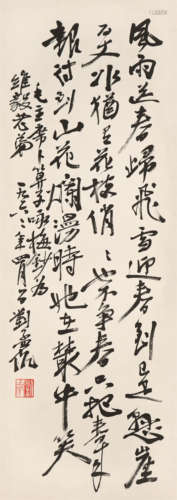 風雨送春歸飛雪迎春到已是懸崖
百丈冰犹有花枝俏〻也不爭春只把春來
報待到山花爛漫時她在叢中笑
毛主席卜算子咏梅鈔为
維毅老弟 一九六二年四月 劉